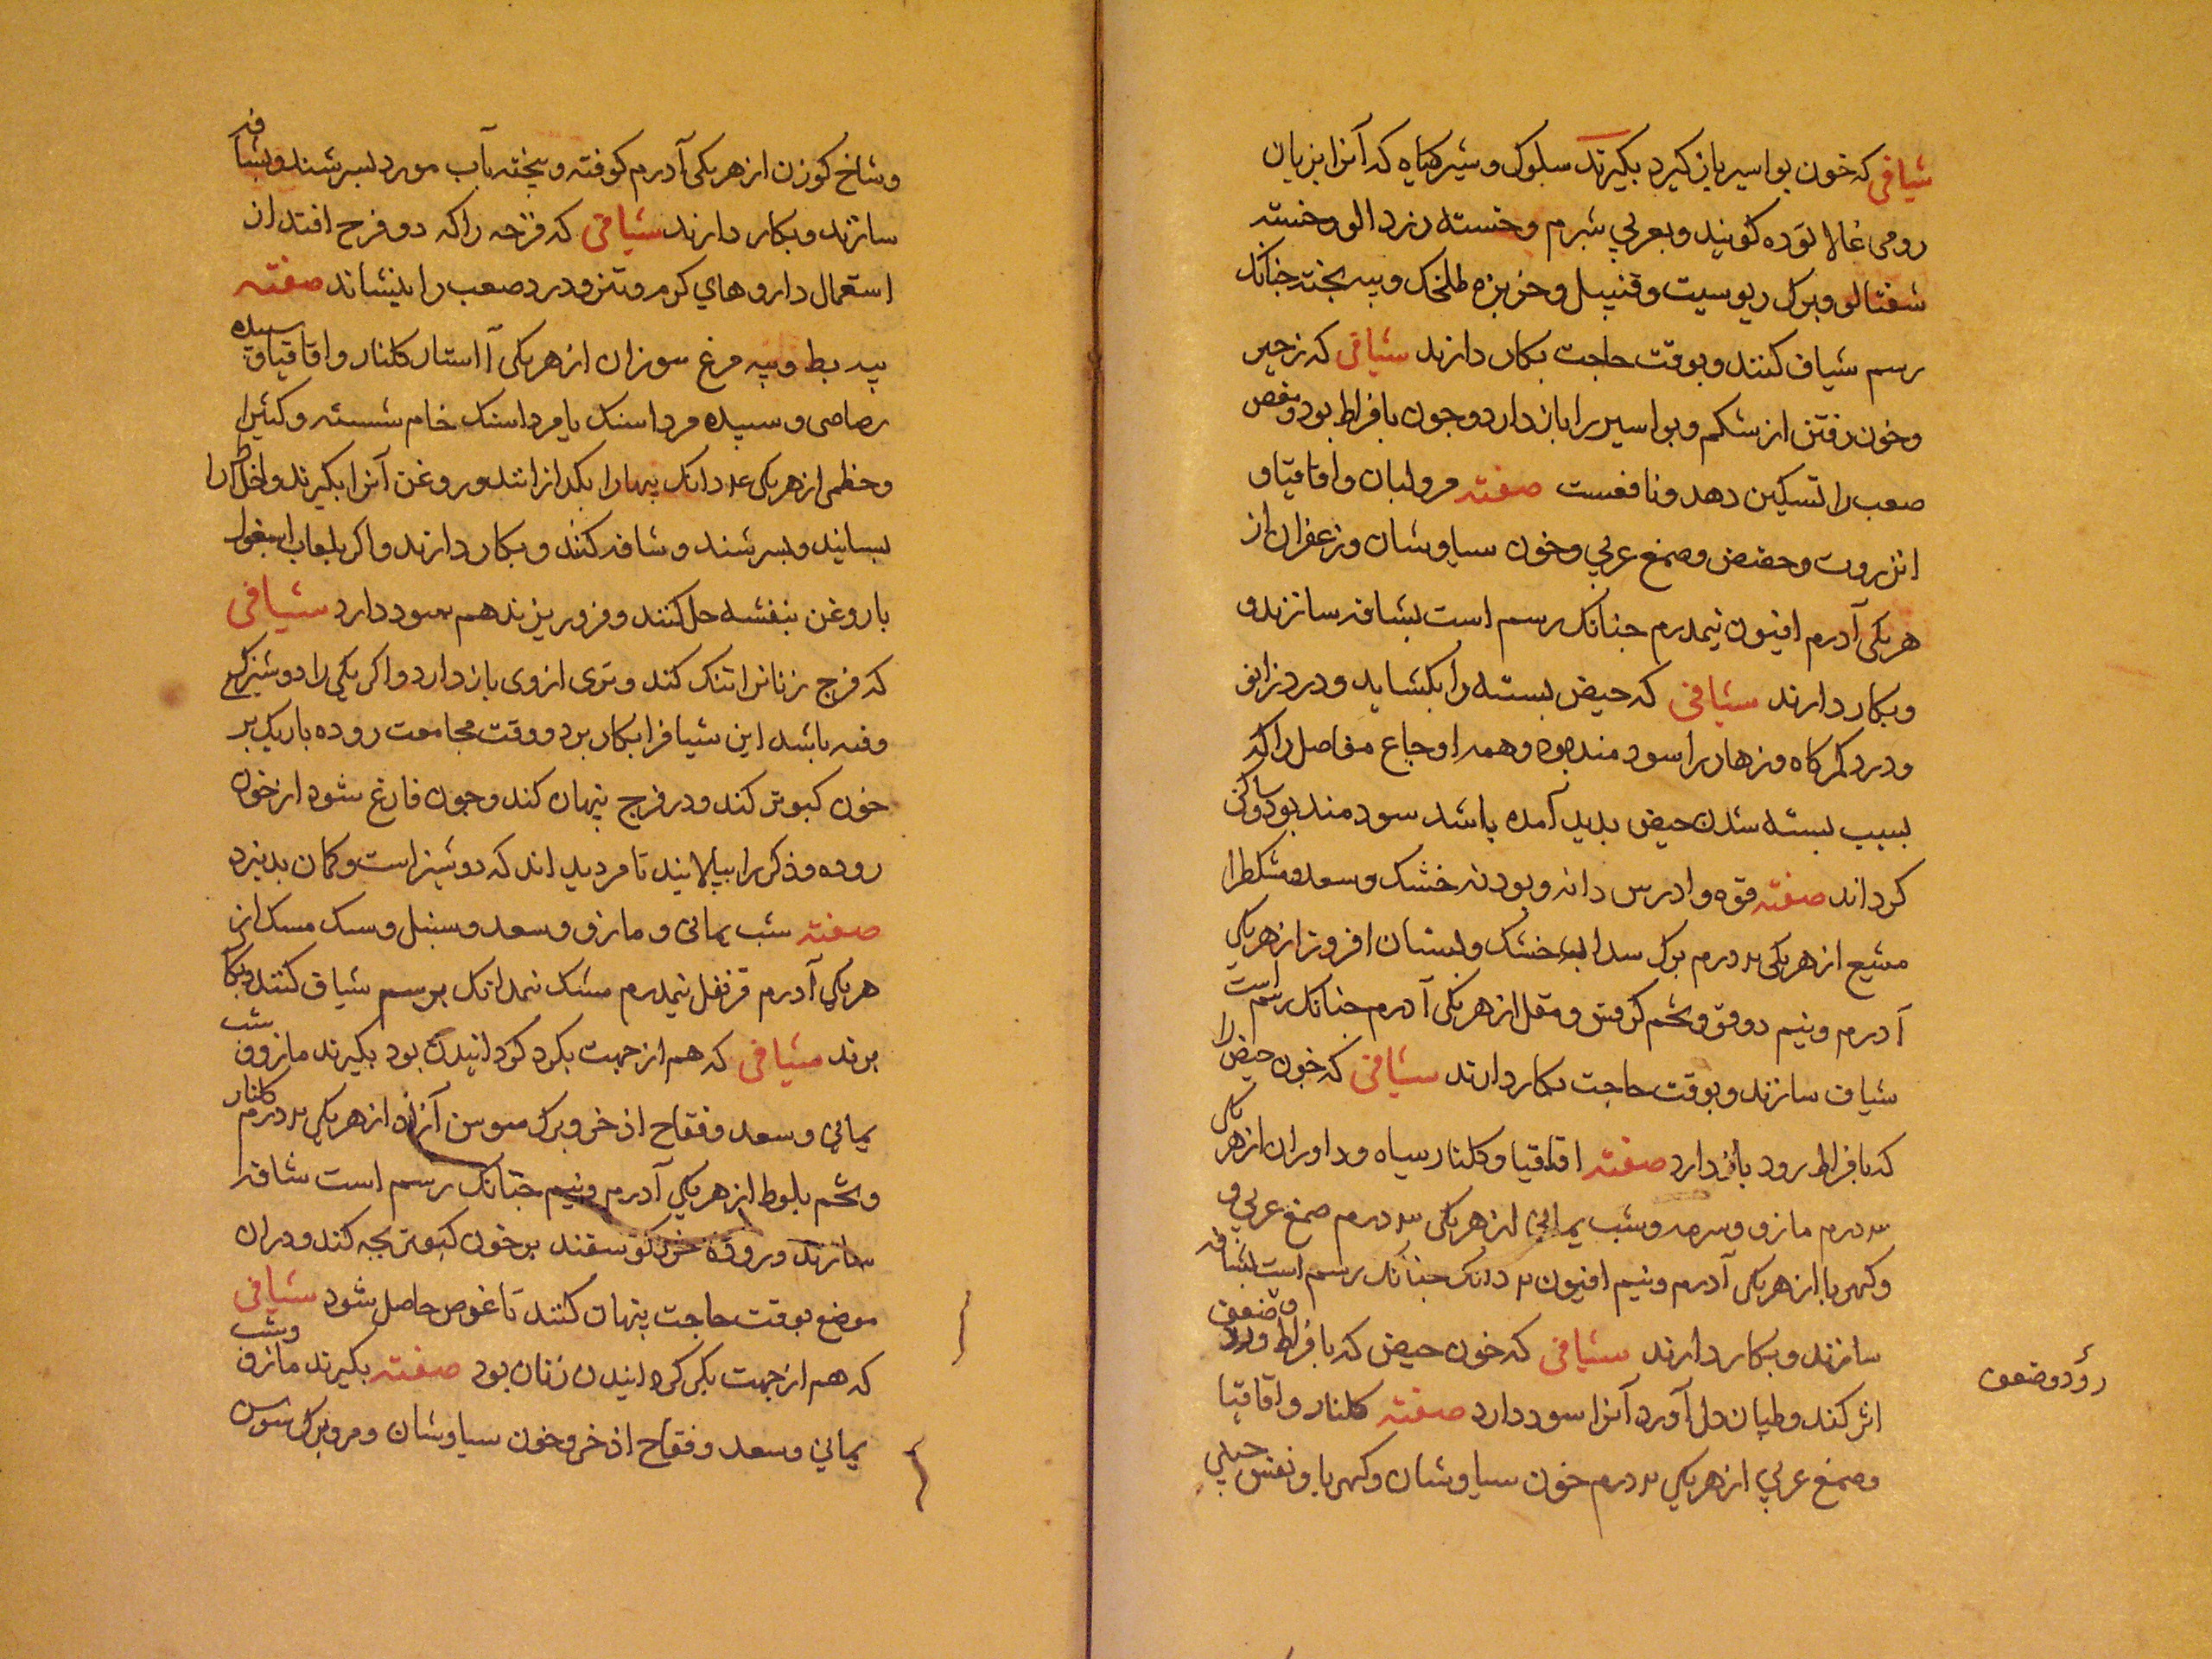 شیافی که خون بواسیر باز کیرد بکیرند سلوک و شیر کیاه که آنرا بزبان
رومی غالا بوده کویند و بعربی شبرم و خسته زردالو و خسته
شفتالو و برک ریوسیت و قنبیل و خربزه طلخک و پیه بخته جنانک
رسم شیاف کنند و بوقت حاجت بکار دارند شیافی که زحیر
و خون رفتن از شکم و بواسیر را باز دارد و جون بافراط بود و مغص
صعب را تسکین دهد و نافعست صفته مر و لبان و اقاقیا و
انزروت و حضض و صمغ عربی و خون سیاوشان و زعفران از
هریکی آ درم افیون نیمدرم جنانک رسم است بشافه سازند و
و بکار دارند شیافی که حیض بسته را بکشاید و درد زانو
و درد کمرکاه و زهار را سودمند بود و همه اوجاع مفاصل را که
بسبب بسته شدن حیض بدید آمده باشد سودمند بود و ساکن
کرداند صفته فوه و ادرس دانه و بودنه خشک و سعد و مشکطرا
مشیع از هریکی ٢ درم برک سداب خشک و بستان افروز از هریکی
آ درم و نیم دوقو و تخم کرفس و مقل از هریکی آ درم جنانک رسم است
شیاف سازند و بوقت حاجت بکار دارند شیافی که خون حیض را
که بافراط رود باز دارد صفته اقاقیا و کلنار سیاه و داوران از هر یکی
٣ درم مازو و سرمه و شب یمانی از هریکی ٢ درم صمغ عربی و
و کهربا از هریکی آ درم و نیم افیون ٢ دانک جنانک رسم است بشافه
سازند و بکار دارند شیافی که خون حیض که بافراط رود و ضعف
رود و ضعف
اثر کند و طپان دل آورد آنرا سود دارد صفته کلنار و اقاقیا
و صمغ عربی از هریکی ٢ درم خون سیاوشان و کهربا و نفس جبلی
و شاخ کوزن از هریکی آ درم کوفته و بیخته بآب مورد بسرشند و شیافه
سازند و بکار دارند شیافی که قرحه را که در فرج افتد از
استعمال داروهای کرم و تیز و درد صعب را بنشاند صفته
پیه بط و پیه مرغ سوزان از هریکی آ استار کلنار و اقاقیا و سپیده
رصاصی و سپیده مرداسنک یا مرداسنک خام شسته و کثیرا
و خطمی از هریکی ٤ دانک پیها را بکدازانند و روغن آنرا بکیرند و اخلاط را
بسایند و بسرشند و شافه کنند و بکار دارند و اکر بلعاب اسبغول
با روغن بنفشه حل کنند و فرو ریزند هم سود دارد شیافی
که فرج زنانرا تنک کند و تری از وی باز دارد و اکر یکی را دوشیزکی
رفته باشد این شیافرا بکار برد و وقت مجامعت روده باریک پر
خون کبوتر کند و در فرج پنهان کند و جون فارغ شود از خون
روده و ذکر را بیالانید تا مرد بداند که دوشیز است و کمان بدنبرد
صفته شب یمانی و مازو و سعد و سنبل و سک مسک از
هریکی آ درم قرنفل نیمدرم مشک نیمدانک برسم شیاف کنند و بکار
برند شیافی که هم از جهت بکر کردانیدن بود بکیرند مازو و شب
یمانی و سعد و فقاح اذخر و برک سوسن آزاد از هریکی ٢ درم کلنار
و تخم بلوط از هریکی آ درم و نیم جنانک رسم است شافه
سازند و روده خرد کوسفند پر خون کبوتر بچه کند و در آن
موضع بوقت حاجت پنهان کنند تا غرض حاصل شود شیافی
که هم از جهت بکر کردانیدن زنان بود صفته بکیرند مازو و شب
یمانی و سعد و فقاح اذخر و خون سیاوشان و مر و برک سوس